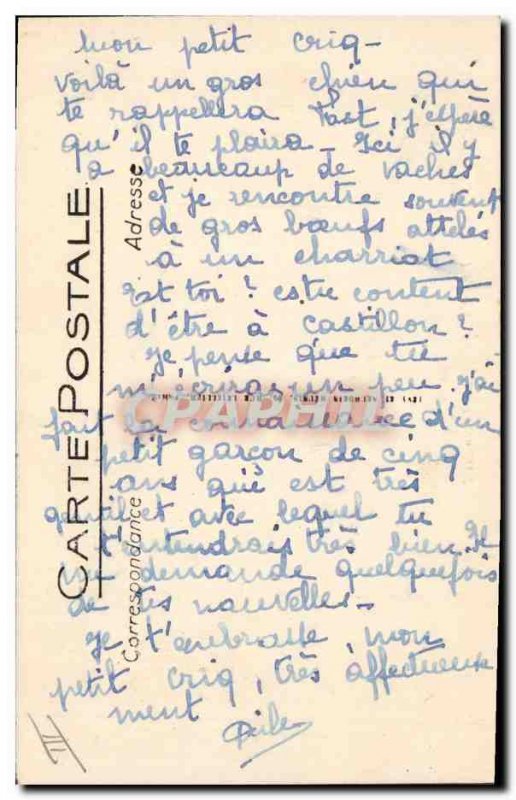 mon petit criq -
voilà un gros chien qui
te rappellera Fast, j'espère
qu'il te plaira - Ici il y
a beaucoup de vaches
et je rencontre souvent
de gros boeufs attelés
à un charriat
Et toi ? es tu content
d'être à Castillon ?
Je pense que tu
m'écriras un peu. j'ai
fait la connaissance d'un
petit garçon de cinq
ans qui est très
gentil et avec lequel tu
t'entendrais très bien. Il
me demande quelquefois
de tes nouvelles -
Je t'embrasse, mon
petit criq, très affectueuse
ment
CARTE POSTALE
Correspondance
Adresse
CPAPHIL
III